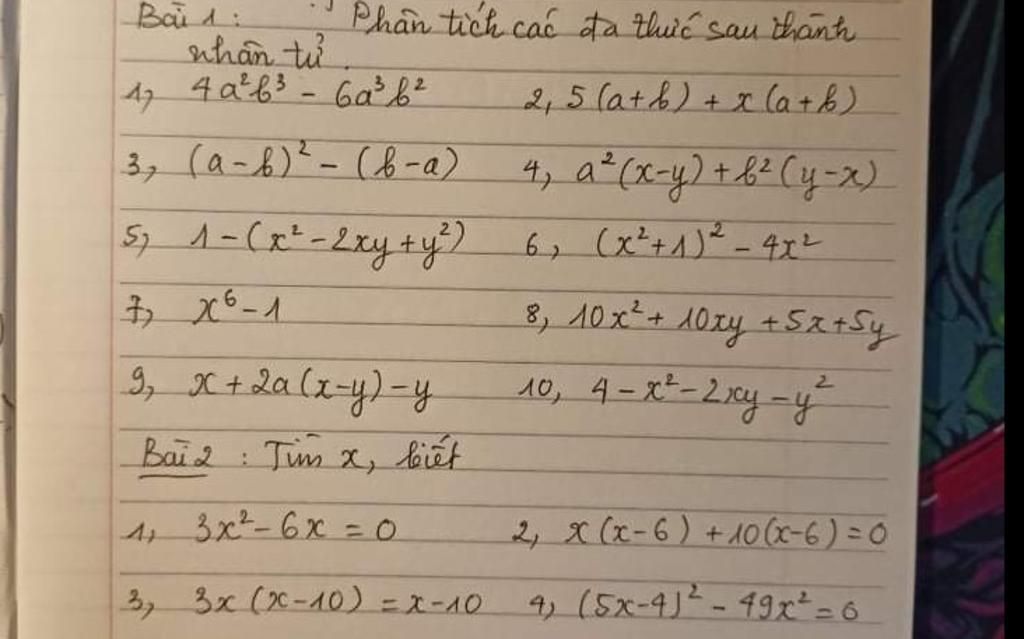 Bài 1: Phân tích các đa thức sau thành
nhân tử.
1, 4a²b³ - 6a³b² 2, 5(a+b) + x(a+b)
3, (a-b)² - (b-a) 4, a²(x-y) + b²(y-x)
5, 1-(x²-2xy+y²) 6, (x²+1)² - 4x²
7, x⁶-1 8, 10x²+10xy+5x+5y
9, x+2a(x-y)-y 10, 4-x²-2xy-y²
Bài 2: Tìm x, biết
1, 3x²-6x=0 2, x(x-6)+10(x-6)=0
3, 3x(x-10)=x-10 4, (5x-4)²-49x²=0